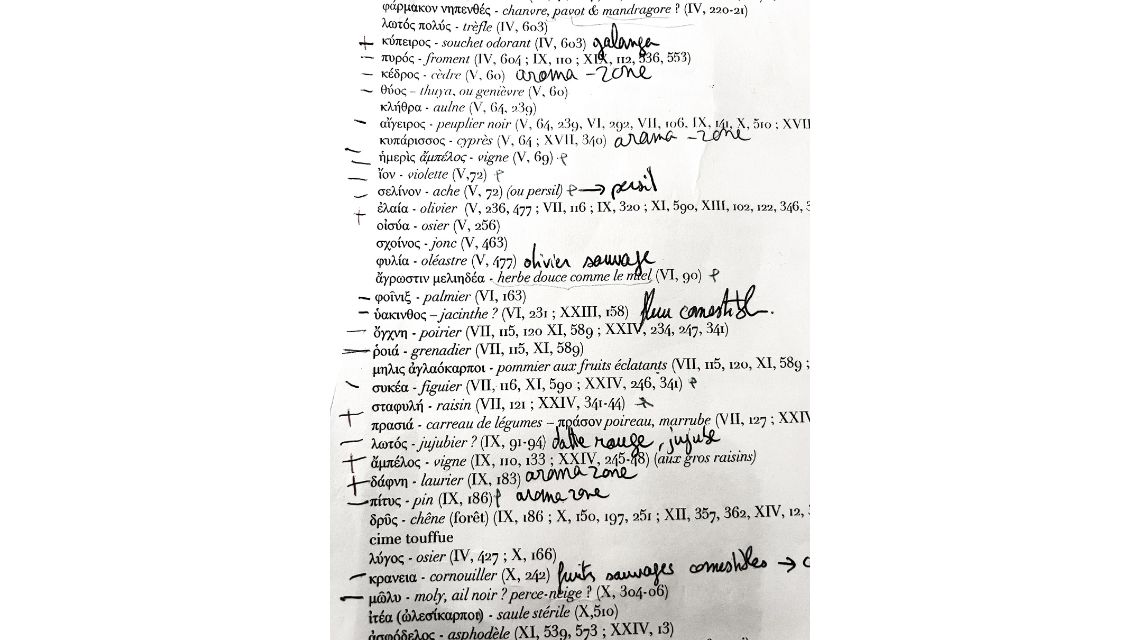 φάρμακον νηπενθές - chanvre, pavot & mandragore ? (IV, 220-21)
λωτός πολύς - trèfle (IV, 603)
+ κύπειρος - souchet odorant (IV, 603) galanga
– πυρός - froment (IV, 604 ; IX, 110 ; XIX, 112, 536, 553)
– κέδρος - cèdre (V, 60) aroma-zone
– θύος – thuya, ou genièvre (V, 60)
κλήθρα - aulne (V, 64, 239)
– αἴγειρος - peuplier noir (V, 64, 239, VI, 292, VII, 106, IX, 141, X, 510 ; XVII
κυπάρισσος - cyprès (V, 64 ; XVII, 340) aroma-zone
– ἡμερὶς ἄμπέλος - vigne (V, 69)
– ἴον - violette (V,72)
– σελίνον - ache (V, 72) (ou persil) → persil
+ ἐλαία - olivier (V, 236, 477 ; VII, 116 ; IX, 320 ; XI, 590, XIII, 102, 122, 346, 3
οἰσύα - osier (V, 256)
σχοίνος - jonc (V, 463)
φυλία - oléastre (V, 477) olivier sauvage
ἄγρωστιν μελιηδέα - herbe douce comme le miel (VI, 90)
– φοῖνιξ - palmier (VI, 163)
– ὑακινθος – jacinthe ? (VI, 231 ; XXIII, 158) fleur comestible.
– ὄγχνη - poirier (VII, 115, 120 XI, 589 ; XXIV, 234, 247, 341)
– ῥοιά - grenadier (VII, 115, XI, 589)
μηλις ἀγλαόκαρποι - pommier aux fruits éclatants (VII, 115, 120, XI, 589 ;
– συκέα - figuier (VII, 116, XI, 590 ; XXIV, 246, 341)
σταφυλή - raisin (VII, 121 ; XXIV, 341-44)
+ πρασιά - carreau de légumes – πράσον poireau, marrube (VII, 127 ; XXIV
– λωτός - jujubier ? (IX, 91-94) datte rouge, jujube
+ ἄμπέλος - vigne (IX, 110, 133 ; XXIV, 245-48) (aux gros raisins)
+ δάφνη - laurier (IX, 183) aroma zone
– πίτυς - pin (IX, 186) aroma zone
δρῦς - chêne (forêt) (IX, 186 ; X, 150, 197, 251 ; XII, 357, 362, XIV, 12, 
cime touffue
λύγος - osier (IV, 427 ; X, 166)
– κρανεια - cornouiller (X, 242) fruits sauvages comestibles →
– μῶλυ - moly, ail noir ? perce-neige ? (X, 304-06)
ἰτέα (ὠλεσίκαρποι) - saule stérile (X,510)
ἀσφόδελος - asphodèle (XI, 539, 573 ; XXIV, 13)